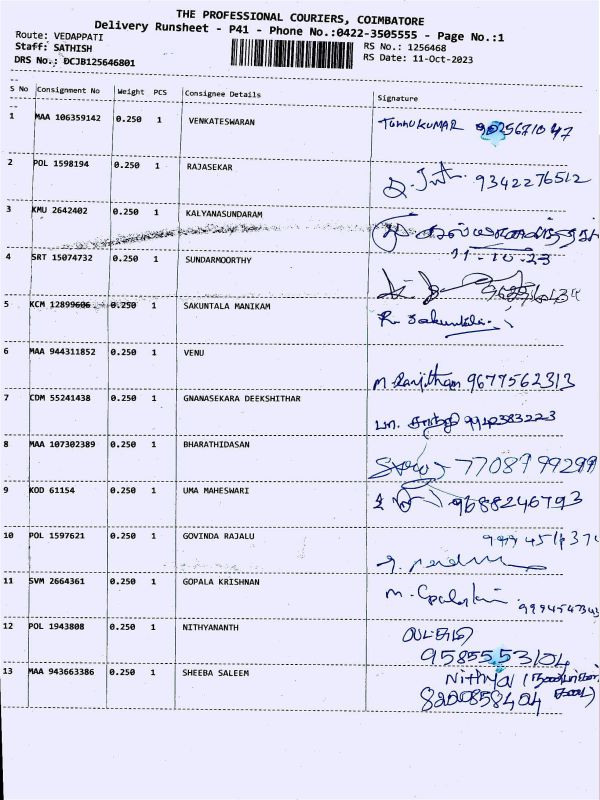 THE PROFESSIONAL COURIERS, COIMBATORE
Delivery Runsheet - P41 - Phone No.:0422-3505555 - Page No.:1
Route: VEDAPPATI
Staff: SATHISH
DRS No.: DCJB125646801
RS No.: 1256468
RS Date: 11-Oct-2023
S No Consignment No Weight PCS Consignee Details Signature
1 MAA 106359142 0.250 1 VENKATESWARAN
2 POL 1598194 0.250 1 RAJASEKAR 9342276512
3 KMU 2642402 0.250 1 KALYANASUNDARAM
11-10-23
4 SRT 15074732 0.250 1 SUNDARMOORTHY
5 KCM 12899606 0.250 1 SAKUNTALA MANIKAM R. Sakuntala.
6 MAA 944311852 0.250 1 VENU M. Ranjitham 9677562313
7 CDM 55241438 0.250 1 GNANASEKARA DEEKSHITHAR 9942383223
8 MAA 107302389 0.250 1 BHARATHIDASAN 7708799299
9 KOD 61154 0.250 1 UMA MAHESWARI 9688246793
10 POL 1597621 0.250 1 GOVINDA RAJALU
11 SVM 2664361 0.250 1 GOPALA KRISHNAN
12 POL 1943808 0.250 1 NITHYANANTH
9585553104
13 MAA 943663386 0.250 1 SHEEBA SALEEM Nithya
8200858404